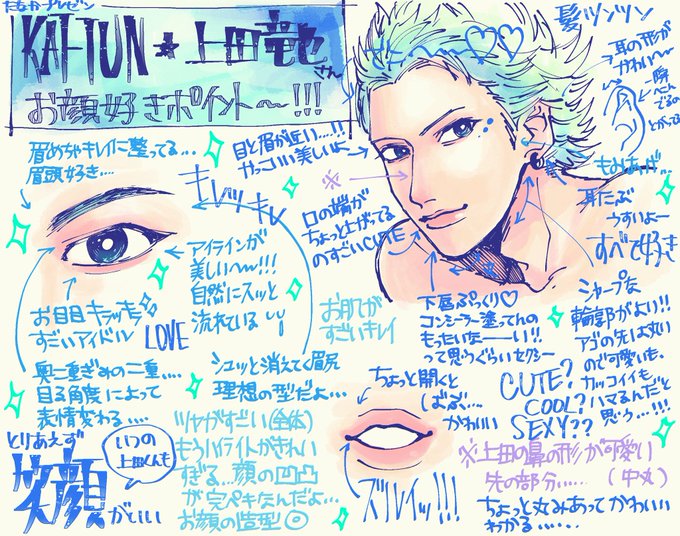 たなかプレゼン
KAT-TUN★上田竜也さん
お顔好きポイント〜!!!
髪ツンツン
耳の形が
かわい〜
もみあげ…
耳たぶ
うすいよー
すべて好き
眉めちゃキレイに整ってる…
眉頭好き…
目と眉が近い…!!
やっこいい美しいよ
※
キレッキレ
口の端が
ちょっと上がってる
のすごいCUTE
アイラインが
美しい〜!!!
自然にスッと
流れている
お目目キラッキラ
すごいアイドル
LOVE
お肌が
すごいキレイ
下唇ぷっくり♡
コンシーラー塗ってんの
もったいなーーい!!
って思うぐらいセクシー
シャープな
輪郭がよい!!
アゴの先は丸い
ので可愛いも、
カッコイイも、
ハマるんだと
思う…!!!
CUTE?
COOL?
SEXY??
奥二重ぎみの二重…
目る角度によって
表情変わる…
シュッと消えてく眉尻
理想の型だよ…
ちょっと開くと
かわいい
ズルイッ!!!
ツヤがすごい(全体)
もうハイライトがきれい
すぎる…顔の凹凸
が完ペキなんだよ…
お顔の造型◎
とりあえず
笑顔がいい
いつの
上田くんも
※上田の鼻の形が可愛い
先の部分……(中丸)
ちょっと丸みあってかわいい
わかる……